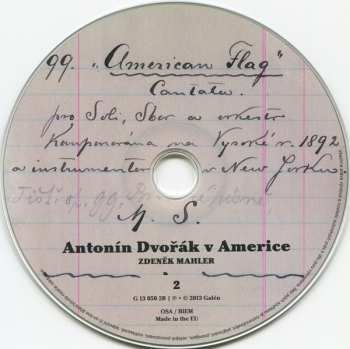 99. „American Flag"
Cantáta.
pro Soli, Sbor a orkestr
Komponována na Vysoké r. 1892
a instrumentov v New Yorku
M. S.
Antonín Dvořák v Americe
ZDENĚK MAHLER
2
G 13 050 28 | ℗ + © 2013 Galén
OSA / BIEM
Made in the EU